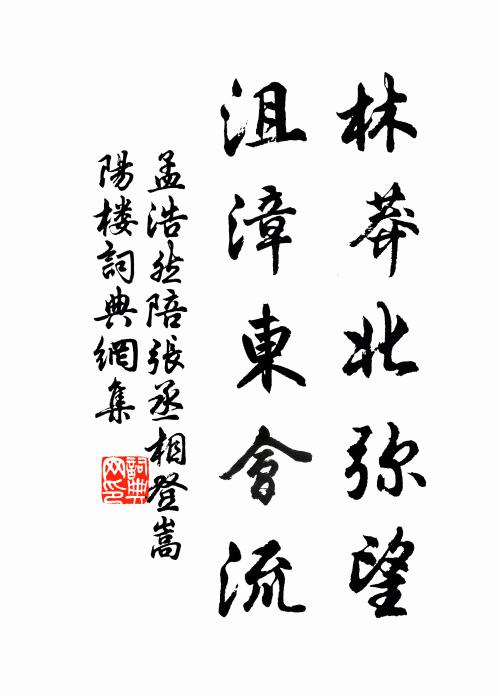 林莽北弥望
沮漳東會流
孟浩然陪張丞相登嵩
陽楼詞典網集
詞典
网印